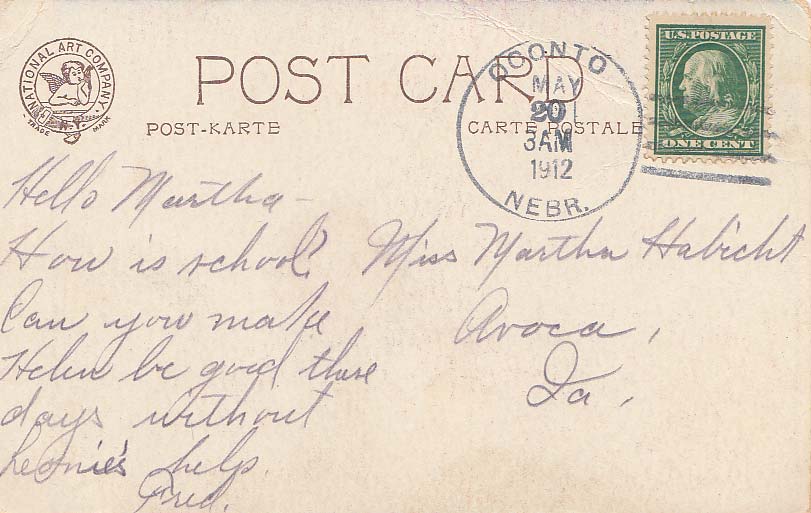 NATIONAL ART COMPANY
N.Y.
TRADE MARK
POST CARD
POST-KARTE
CARTE POSTALE
OCONTO
MAY
20
3AM
1912
NEBR.
U.S. POSTAGE
ONE CENT
Hello Martha -
How is school?
Can you make
Helen be good these
days without
Leonie's help.
Fred.
Miss Martha Habicht
Avoca,
Ia.